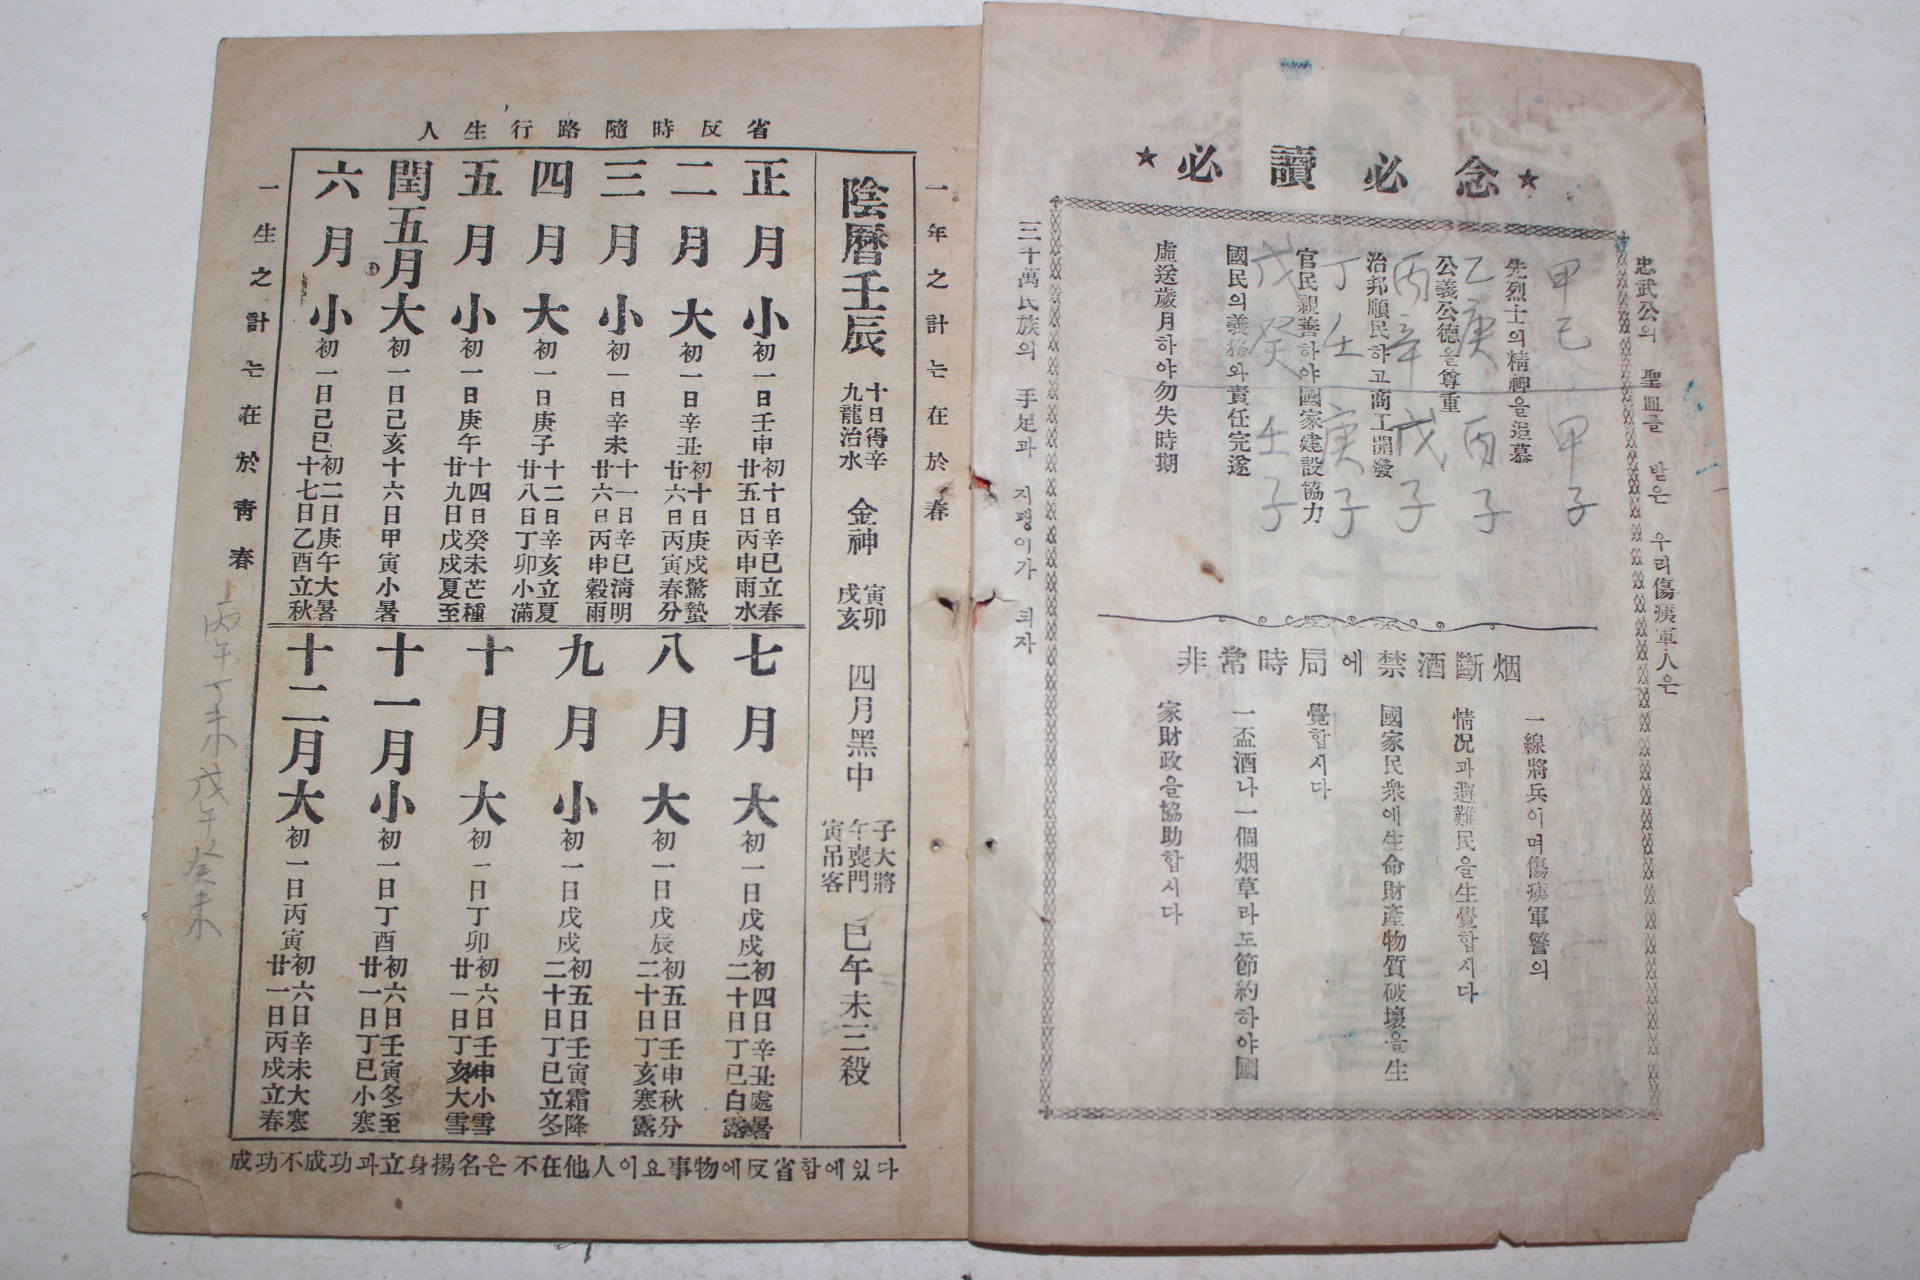 必讀必念
忠武公의 聖血을 받은 우리傷痍軍人은
先烈士의精神을追慕
公義公德을尊重
治邦順民하고商工開發
官民親善하야國家建設協力
國民의義務와責任完遂
虛送歲月하야勿失時期
甲己 甲子
乙庚 丙子
丙辛 戊子
丁壬 庚子
戊癸 壬子
非常時局에禁酒斷烟
一線將兵이며傷痍軍警의
情况과避難民을生覺합시다
國家民衆에生命財產物質破壞을生
覺합시다
一盃酒나一個烟草라도節約하야國
家財政을協助합시다
三千萬民族의 手足과 지팽이가 되자
省反時隨路行生人
一年之計는在於春
陰曆壬辰
十日得辛
九龍治水
金神
寅卯
戌亥
四月黑中
子大將
午喪門
寅吊客
巳午未三殺
正月小初一日壬申初十日辛巳立春
廿五日丙申雨水
二月大初一日辛丑初十日庚戌驚蟄
廿六日丙寅春分
三月小初一日辛未十一日辛巳淸明
廿六日丙申穀雨
四月大初一日庚子十二日辛亥立夏
廿八日丁卯小滿
五月小初一日庚午十四日癸未芒種
廿九日戊戌夏至
閏五月大初一日己亥十六日甲寅小暑
六月小初一日己巳初二日庚午大暑
十七日乙酉立秋
七月大初一日戊戌初四日辛丑處暑
二十日丁巳白露
八月大初一日戊辰初五日壬申秋分
二十日丁亥寒露
九月小初一日戊戌初五日壬寅霜降
二十日丁巳立冬
十月大初一日丁卯初六日壬申小雪
廿一日丁亥大雪
十一月小初一日丁酉初六日壬寅冬至
廿一日丁巳小寒
十二月大初一日丙寅初六日辛未大寒
廿一日丙戌立春
一生之計는在於靑春
丙午丁未戊午癸未
成功不成功과立身揚名은不在他人이요事物에反省함에있다